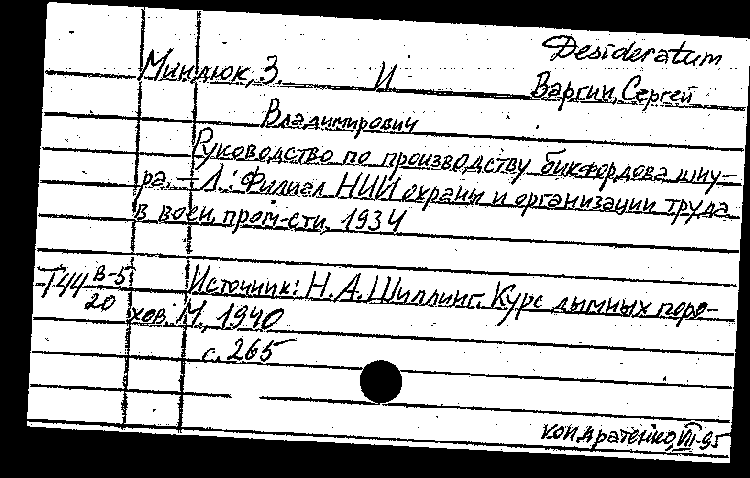 Desideratum
Миндюк, З. И Варгин, Сергей
Владимирович
Руководство по производству бикфордова шну-
ра. – Л.: Филиал НИИ охраны и организации труда
в воен. пром-сти, 1934
Т44 В-5/20 Источник: Н.А. Шиллинг. Курс дымных поро-
хов. М., 1940
с. 265
Кондратенко, VII-95